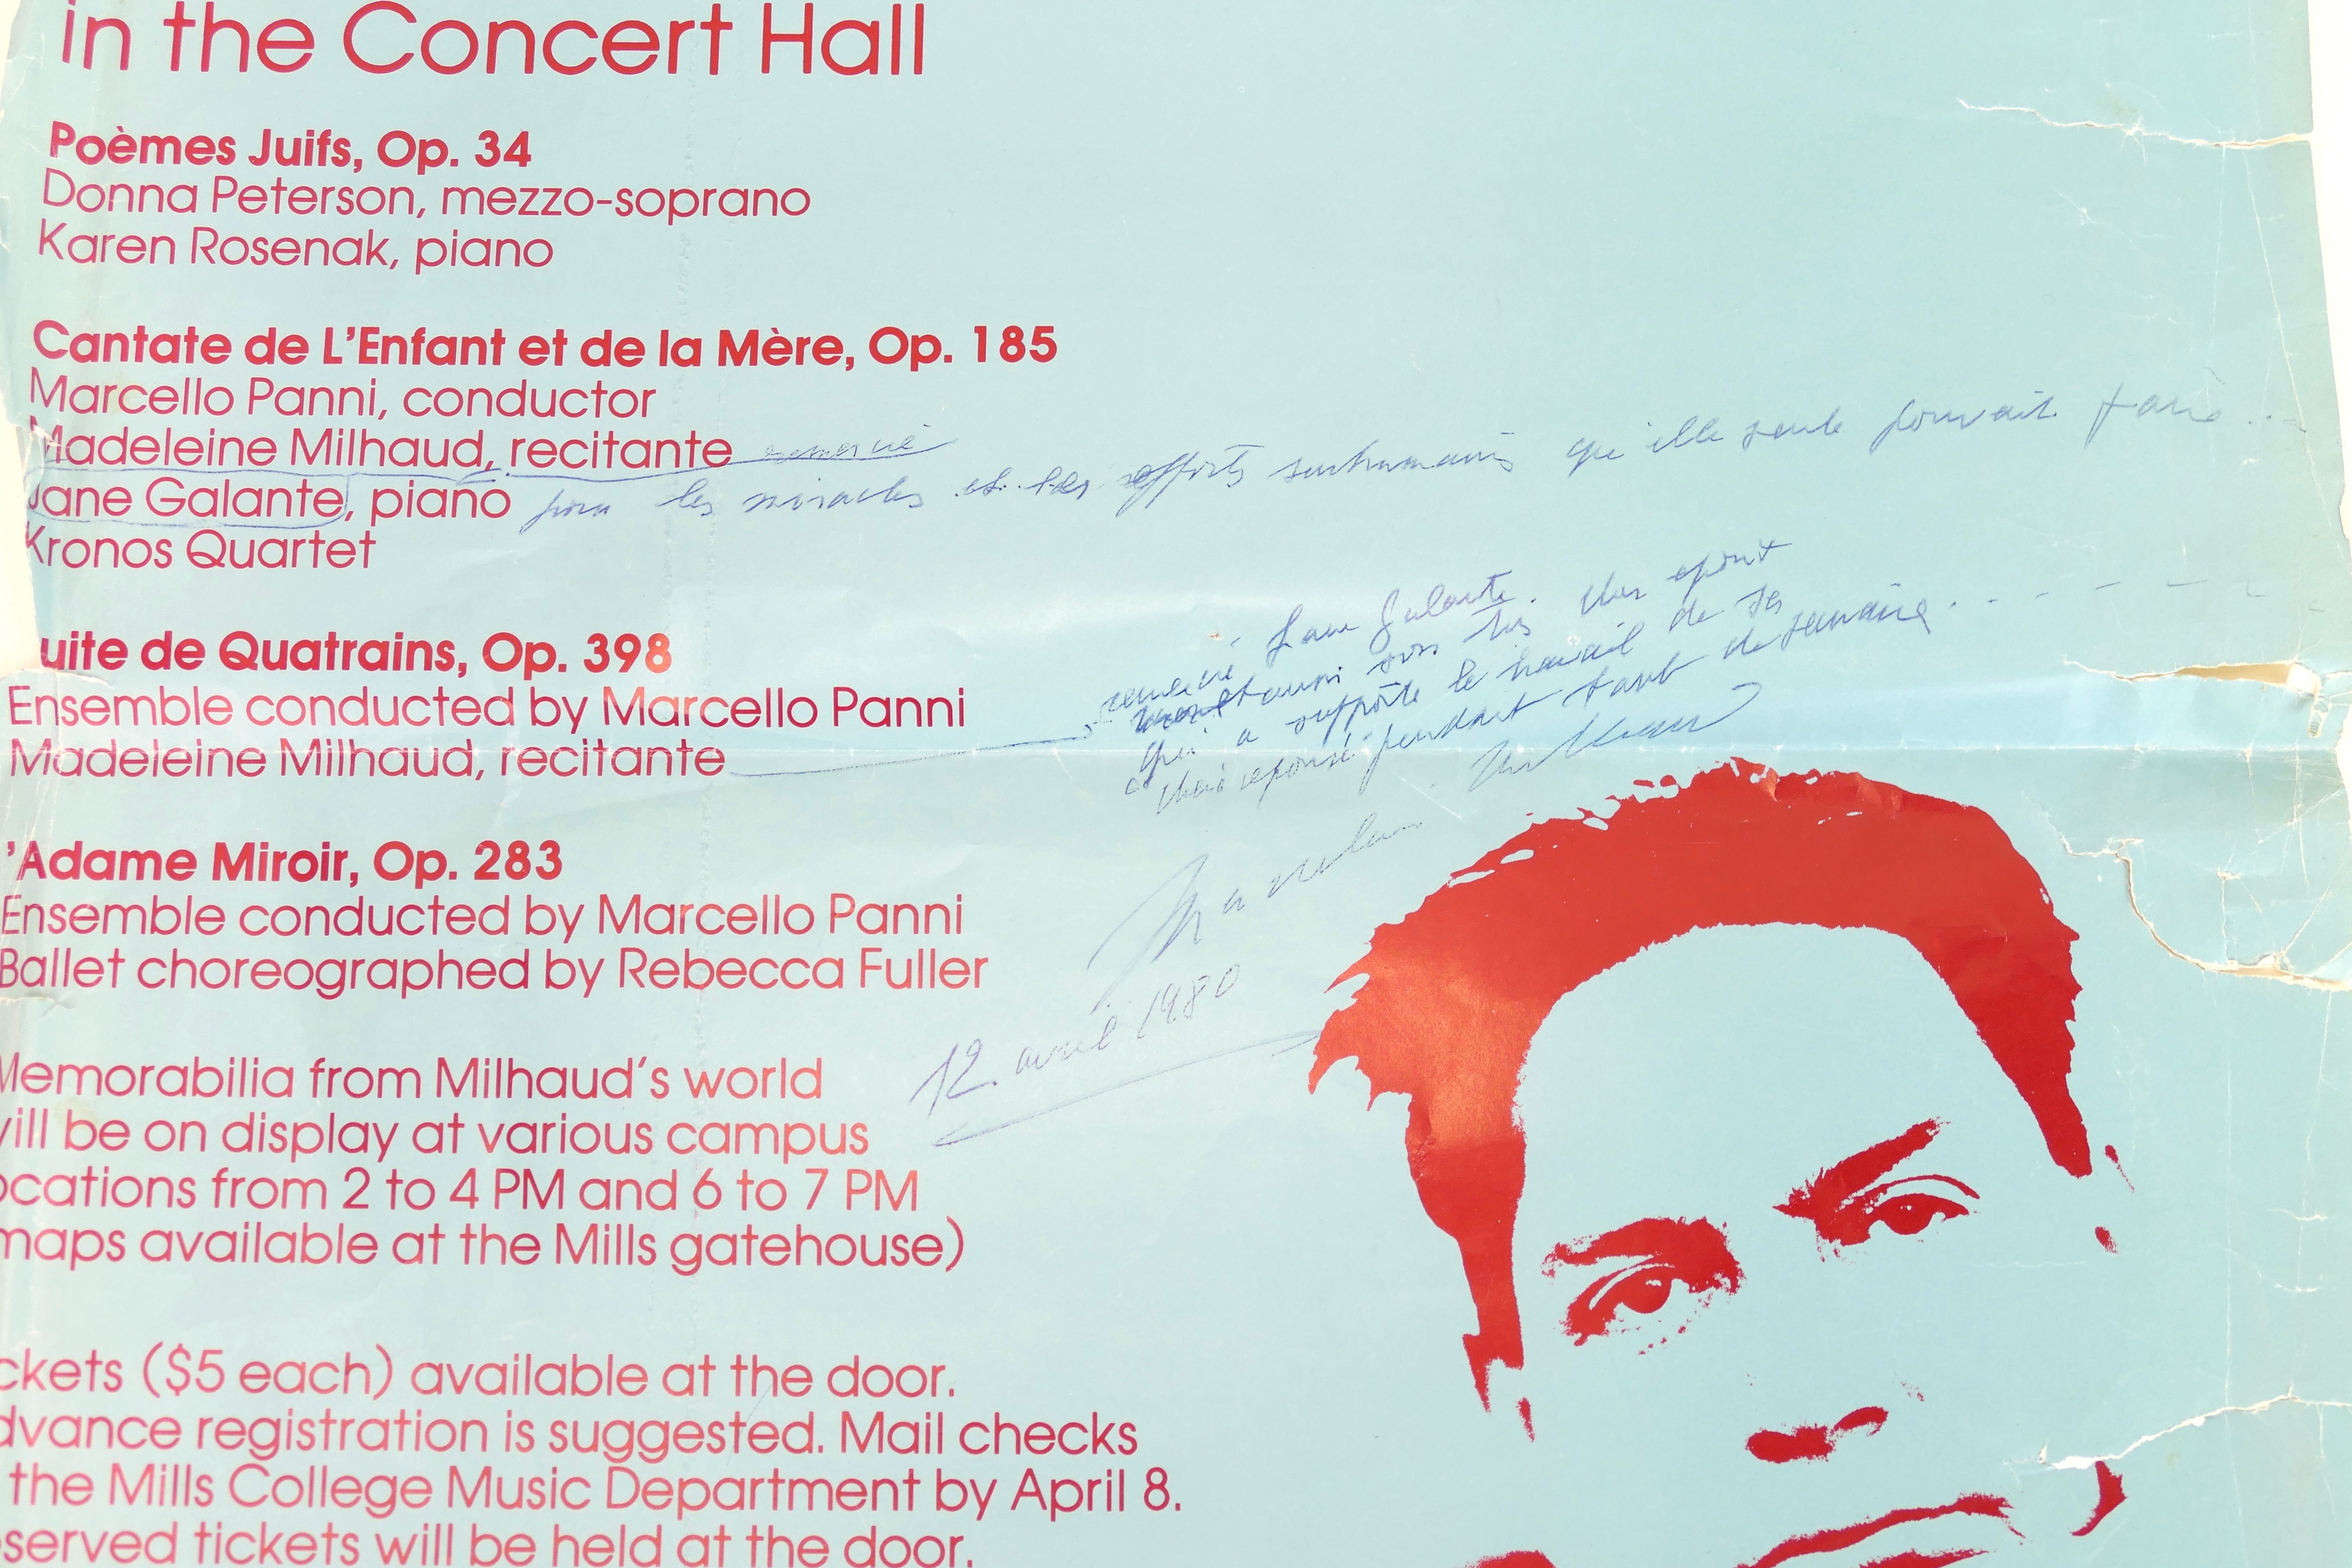 in the Concert Hall
Poèmes Juifs, Op. 34
Donna Peterson, mezzo-soprano
Karen Rosenak, piano
Cantate de L'Enfant et de la Mère, Op. 185
Marcello Panni, conductor
Madeleine Milhaud, recitante remercie
Jane Galante, piano pour les miracles et les efforts surhumains qu'elle seule pouvait faire...
Kronos Quartet
uite de Quatrains, Op. 398
Ensemble conducted by Marcello Panni
Madeleine Milhaud, recitante
remercie Jane Galante.
et aussi son très cher époux
qui a supporté le travail de ses
pendant tant de semaines
Madeleine Milhaud
12 avril 1980
'Adame Miroir, Op. 283
Ensemble conducted by Marcello Panni
Ballet choreographed by Rebecca Fuller
Memorabilia from Milhaud's world
will be on display at various campus
ocations from 2 to 4 PM and 6 to 7 PM
maps available at the Mills gatehouse)
ckets ($5 each) available at the door.
dvance registration is suggested. Mail checks
the Mills College Music Department by April 8.
served tickets will be held at the door.